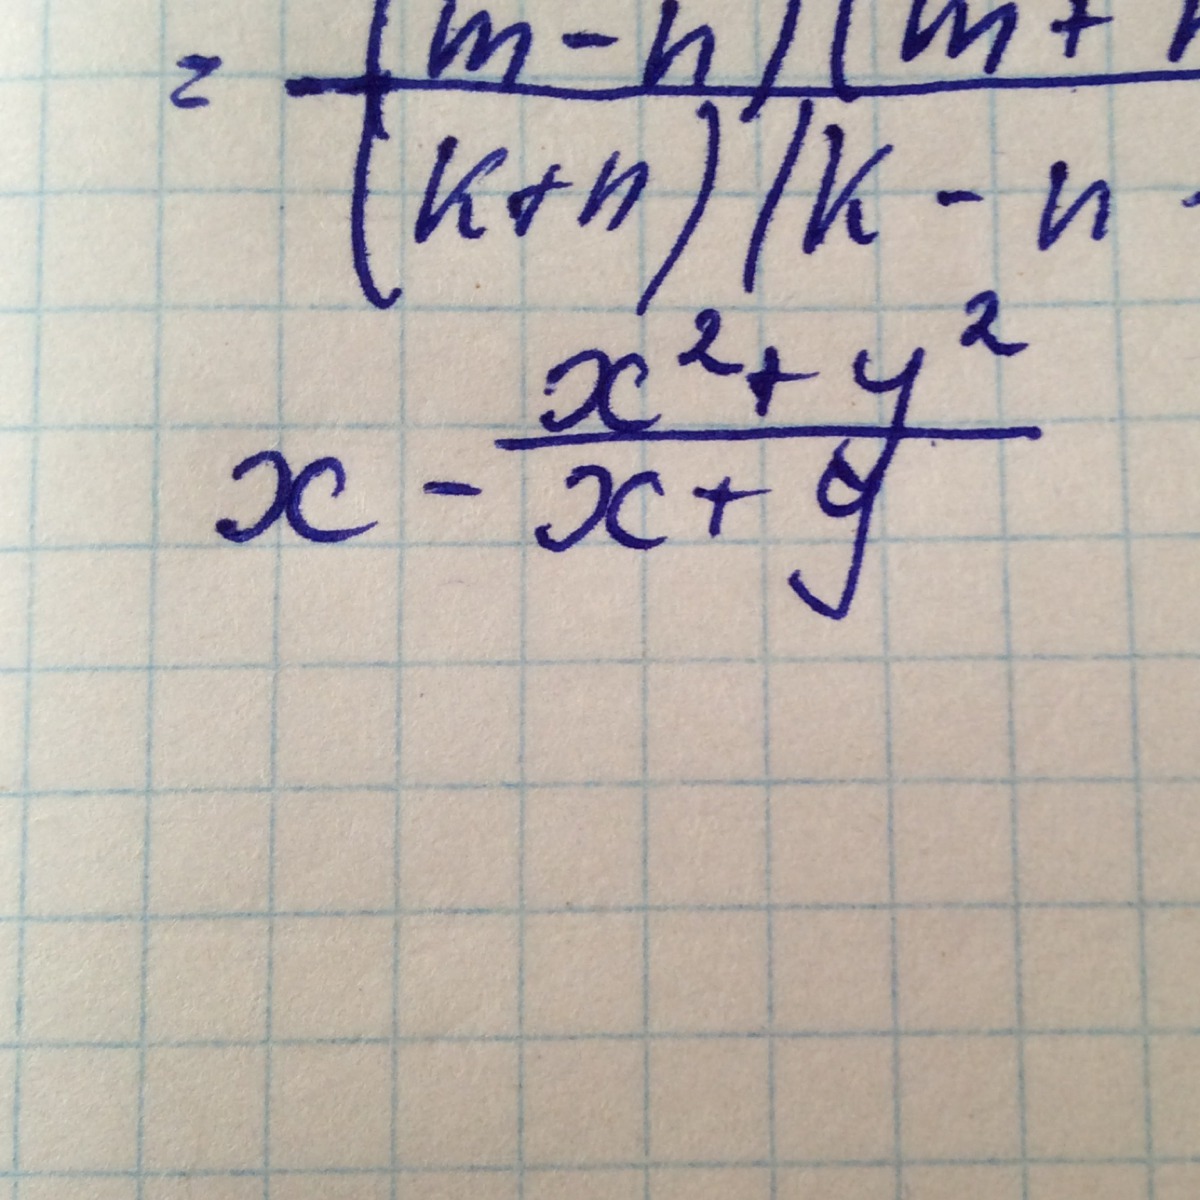 = (m - n)(m +
(k+n)(k - n
x² + y²
x - x + y